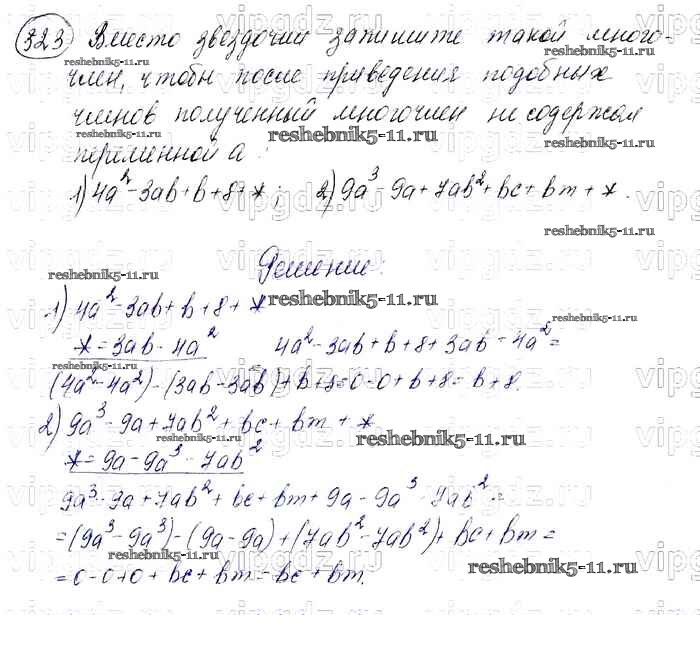 323 Вместо звездочки запишите такой много-
член, чтобы после приведения подобных
членов полученный многочлен не содержал
reshebnik5-11.ru
переменной a:
1) 4a² - 3ab + b + 8 + *; 2) 9a³ - 9a + 7ab² + bc + bm + *.
Решение:
1) 4a² - 3ab + b + 8 + *
* = 3ab - 4a² 4a² - 3ab + b + 8 + 3ab - 4a² =
(4a² - 4a²) - (3ab - 3ab) + b + 8 = 0 - 0 + b + 8 = b + 8.
2) 9a³ - 9a + 7ab² + bc + bm + *
* = 9a - 9a³ - 7ab²
9a³ - 9a + 7ab² + bc + bm + 9a - 9a³ - 7ab² =
= (9a³ - 9a³) - (9a - 9a) + (7ab² - 7ab²) + bc + bm =
= 0 - 0 + 0 + bc + bm = bc + bm.